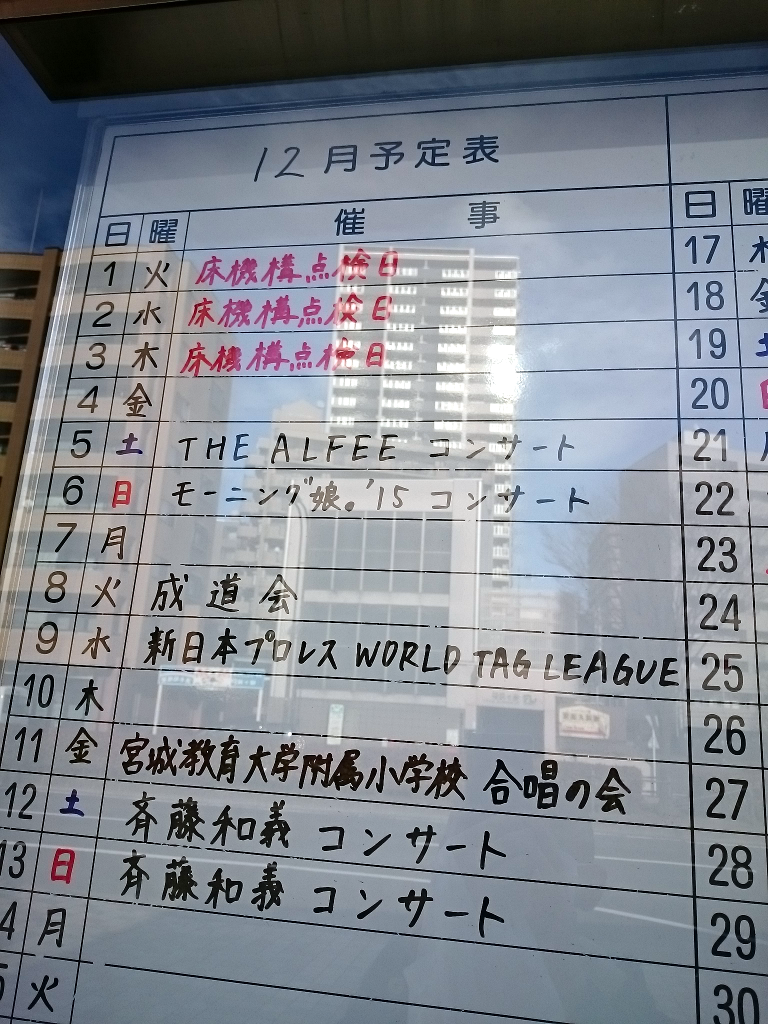 12月予定表
日 曜 催 事
1 火 床機構点検日
2 水 床機構点検日
3 木 床機構点検日
4 金
5 土 THE ALFEE コンサート
6 日 モーニング娘。'15 コンサート
7 月
8 火 成道会
9 水 新日本プロレス WORLD TAG LEAGUE
10 木
11 金 宮城教育大学附属小学校 合唱の会
12 土 斉藤和義 コンサート
13 日 斉藤和義 コンサート
4 月
火
日 曜
17
18
19
20
21
22
23
24
25
26
27
28
29
30